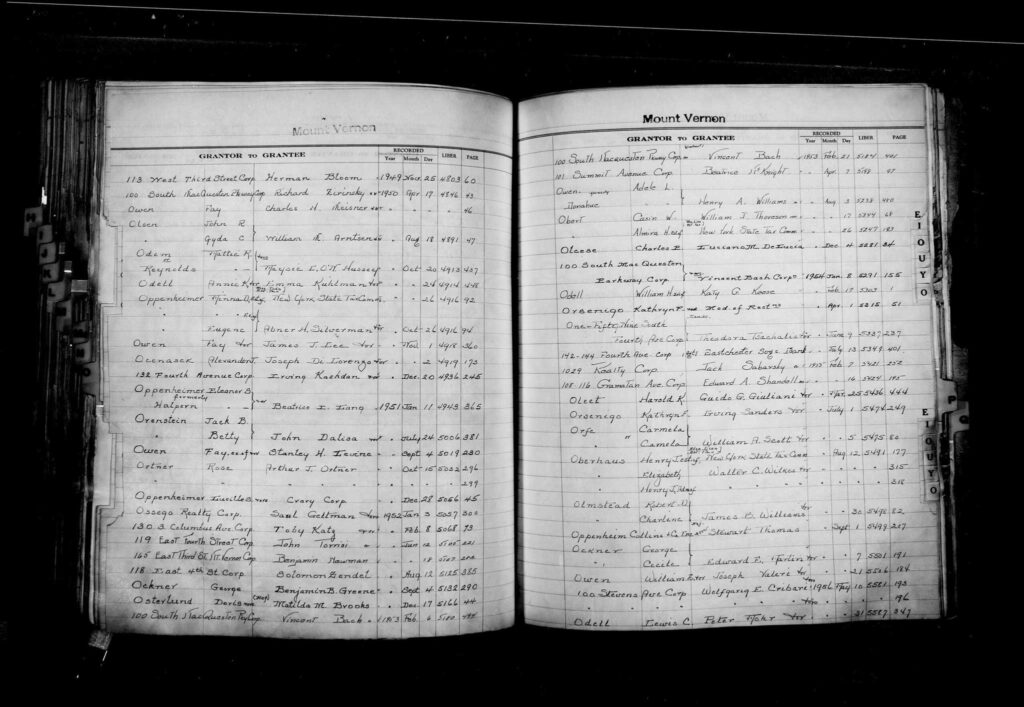 Mount Vernon
GRANTOR TO GRANTEE RECORDED Year Month Day LIBER PAGE
113 West Third Street Corp Herman Bloom 1949 Nov. 25 4803 60
100 South MacQuesten Pkway Corp Richard Zirinsky 1950 Apr 17 4846 43
Owen Fay Charles H. " " " " 46
Olsen John R
" Gyda C William A. Arntsen " Aug 18 4891 47
Odem Mattie R.
Reynolds - - Maysie E. Hussey " Oct 20 4913 437
Odell Annie K Emma Kuhlman " " 24 4914 448
Oppenheimer New York State Tax Comm " " 26 4916 92
" Eugene Abner H. Silverman " Oct 26 4916 94
Owen Fay James J. Lee " Nov 1 4918 360
Ocenasek Alexander J. Joseph Di Lorenzo " " 2 4919 173
132 Fourth Avenue Corp. Irving Kashdan " Dec. 20 4936 245
Oppenheimer Eleanor B.
formerly
Halpern - - Beatrice I. Liang 1951 Jan 11 4943 365
Orenstein Jack B.
" Betty John Dalisa " July 24 5006 381
Owen Fay Stanley H. Levine " Sept 4 5019 280
Ortner Rose Arthur J. Ortner " Oct 15 5032 296
" " " " " " " 299
Oppenheimer Lucille B. Crary Corp " Dec. 28 5056 45
Ossego Realty Corp. Saul Gettman 1952 Jan 3 5057 300
130 S Columbus Ave Corp. Toby Katz " Feb. 8 5068 73
119 East Fourth Street Corp John Torrisi
165 East Third St. Mt. Vernon Corp Benjamin Newman
118 East 4th St Corp Solomon Gendel " Aug 12 5125 385
Ockner George Benjamin B. Greene " Sept 4 5132 290
Osterlund Doris Matilda M. Brooks " Dec 17 5166 44
100 South MacQuesten Pky Corp Vincent Bach 1953 Feb. 6
Mount Vernon
GRANTOR TO GRANTEE RECORDED Year Month Day LIBER PAGE
100 South MacQuesten Pkway Corp Vincent Bach 1953 Feb. 21 5184 401
101 Summit Avenue Corp Beatrice McKnight " Apr. 7
Owen Adele L.
Donahue Henry A. Williams " Aug 3 5238 480
Obert William J. Thoreson " " 17 5244 68
" Almira H. New York State Tax Comm " " 26 5247 187
Oleese Charles P. Luciana M. DeLucia " Dec 4 5281 34
100 South MacQuesten
Parkway Corp. Vincent Bach Corp 1954 Jan. 8 5291 155
Odell William H. Katy G Koose " Feb 17 5303 1
Orsenigo Kathryn F. " Apr 1 5315 51
One-Fifty Nine South
Fourth Ave Corp Theodora Tsechalis " June 9 5337 237
142-144 Fourth Ave Corp Eastchester Sogs Bank " July 13 5349 401
1029 Realty Corp Jack Sabarsky 1955 Feb 7 5421 237
108-116 Gramatan Ave. Corp Edward A. Shandell " " 16 5424 185
Oleet Harold R. Guido G. Giuliani " Mar 25 5436 444
Orsenigo Kathryn F. Irving Sanders " July 1 5474 249
Orfe Carmela
" Carmela William A. Scott " " 5 5475 80
Oberhaus Henry New York State Tax Com " Aug. 12 5491 177
" Elizabeth Walter C. Wilkes " " " 315
" Henry J. " " " 318
Olmstead Robert
" Charlene James B. Williams " " 30 5498 82
Oppenheim Collins & Co. Stewart Thomas " Sept 1 5499 207
Ockner George
" Cecile Edward F. Martin " " 7 5501 191
Owen William Joseph Valeri " " 21 5506 184
100 Stevens Ave Corp Wolfgang E. Cribari 1956 May 10 5581 193
" " " " " " " 196
Odell Lewis C. Peter Mohr " " 31 5587 347
E I O U Y O
E I O U Y O
H
I
J
K
L
P